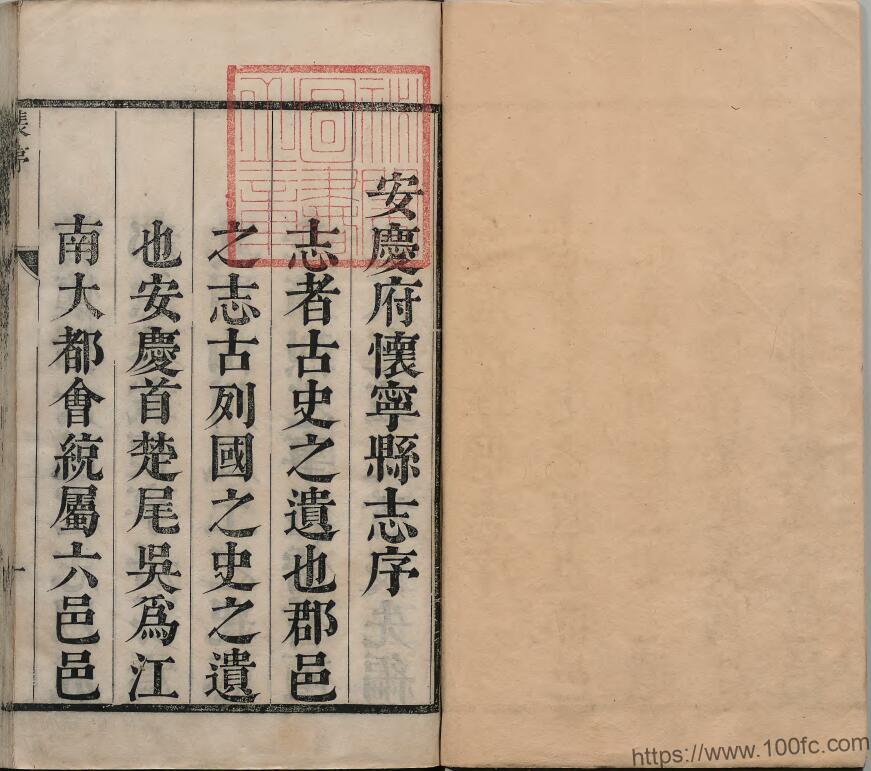 安慶府懷寧縣志序
志者古史之遺也郡邑
之志古列國之史之遺
也安慶首楚尾吳爲江
南大都會統屬六邑邑
https://www.100fc.com